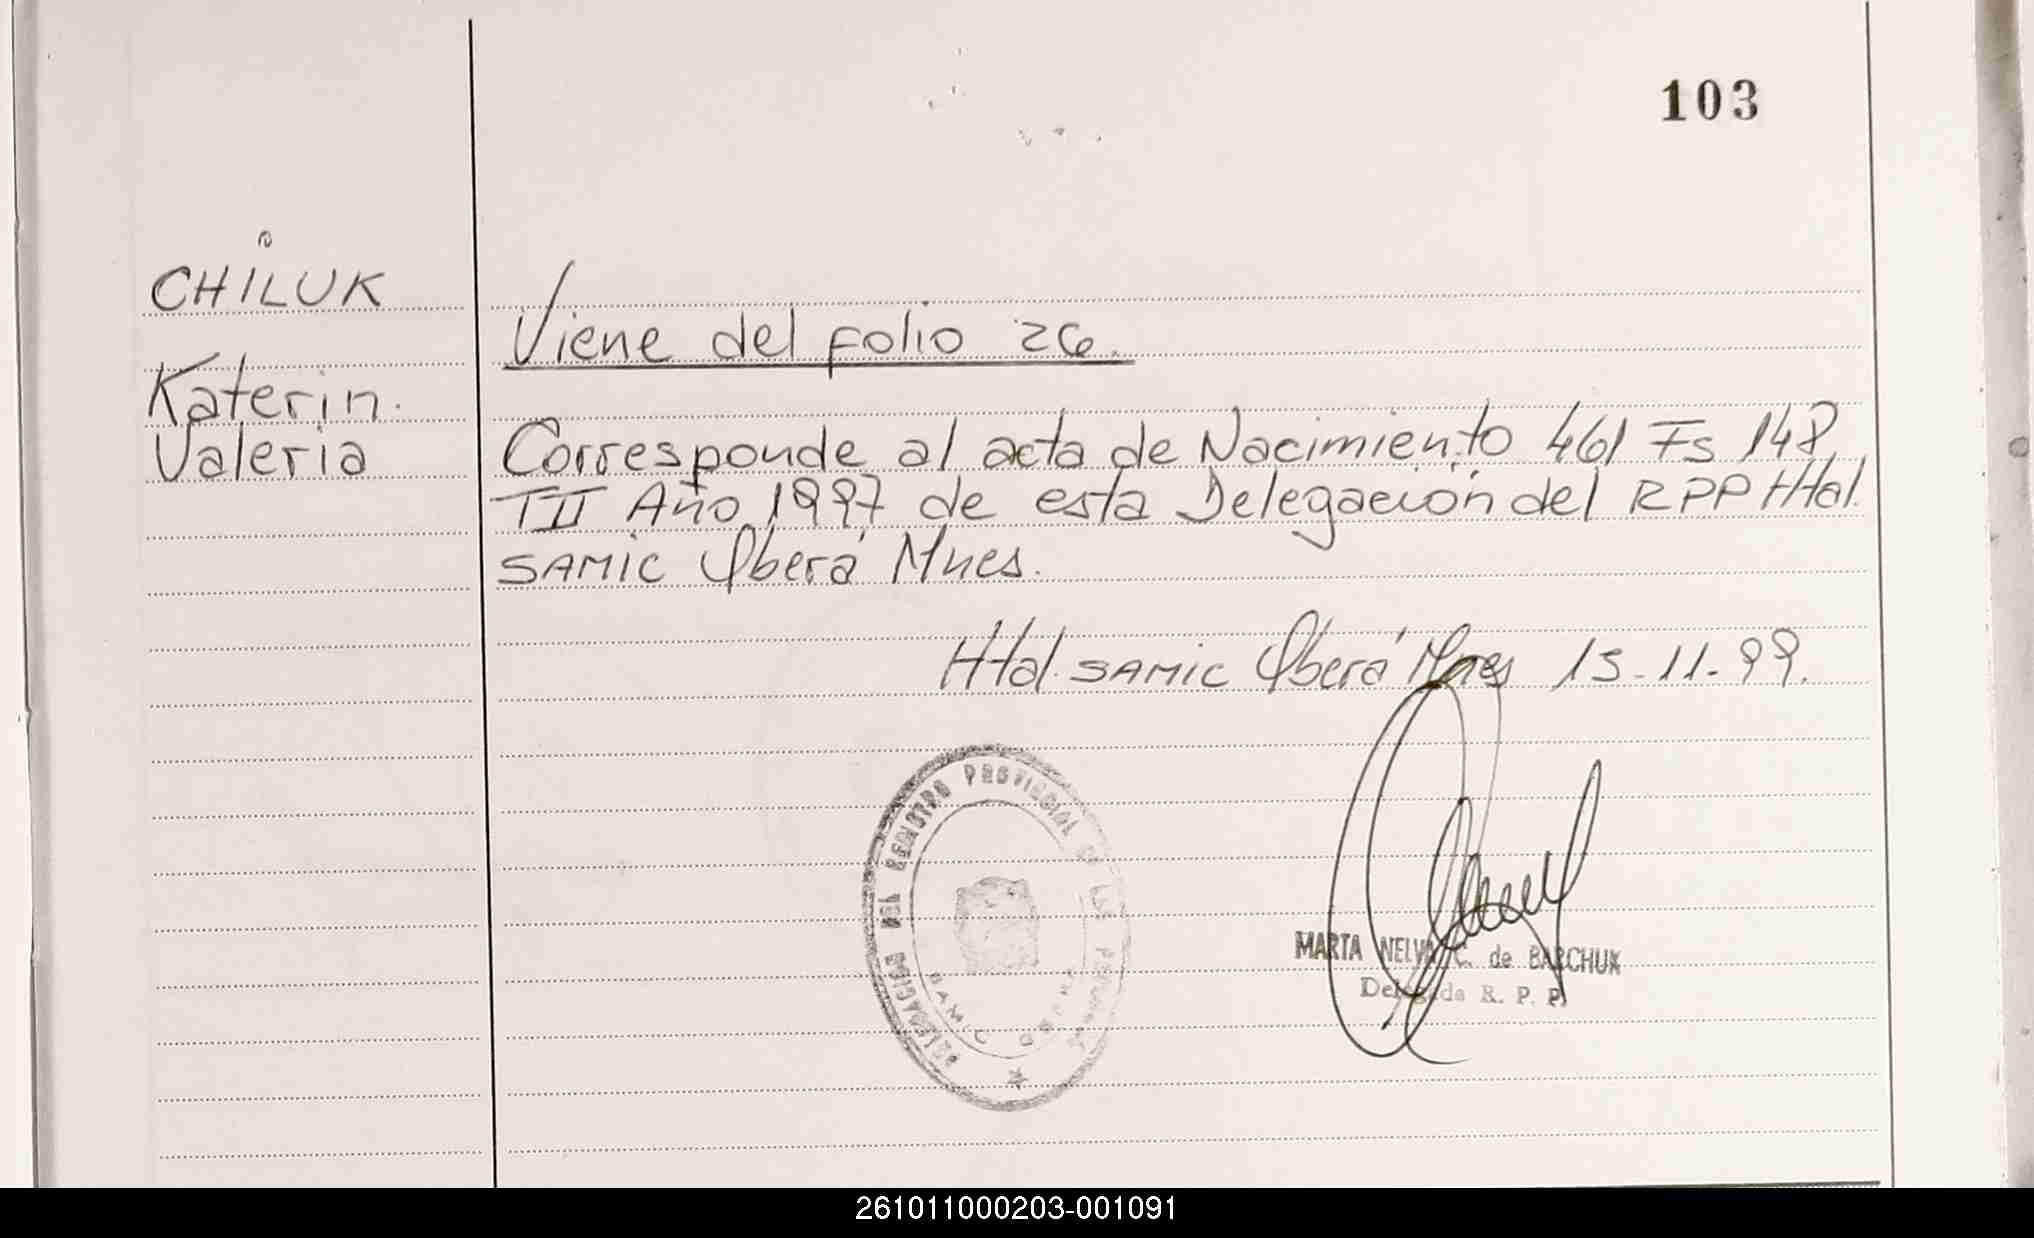 103
CHILUK
Viene del folio 26.
Katerin
Valeria
Corresponde al acta de Nacimiento 461 Fs 148
TII Año 1997 de esta Delegación del RPP Htal.
SAMIC Oberá Mnes.
Htal. SAMIC Oberá Mnes 15-11-99.
DELEGACION DEL REGISTRO PROVINCIAL DE LAS PERSONAS
SAMIC
MARTA NELVA C. de BARCHUK
Delegada R. P. P.
261011000203-001091